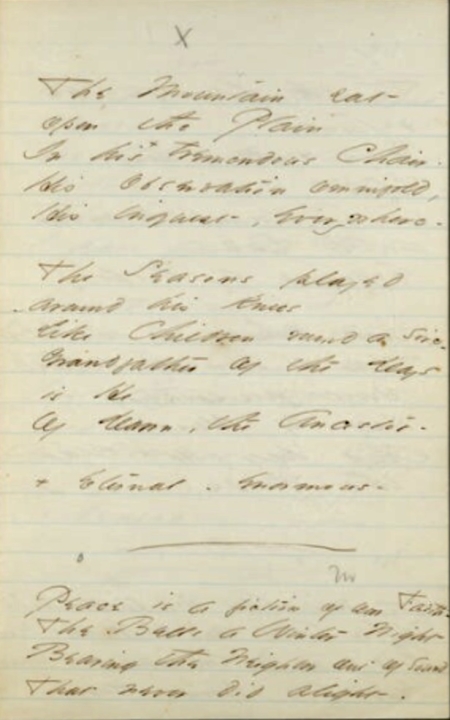 X
The Mountain sat
upon the Plain
In his + tremendous Chair.
His observation omnifold,
His inquest, everywhere -
The Seasons played
around his knees
Like Children round a Sire -
Grandfather of the Days
is He
Of Dawn, the Ancestor -
+ Eternal . enormous -
Peace is a fiction of our Faith -
The Bells a Winter Night
Bearing the Neighbor out of Sound
That never did alight .